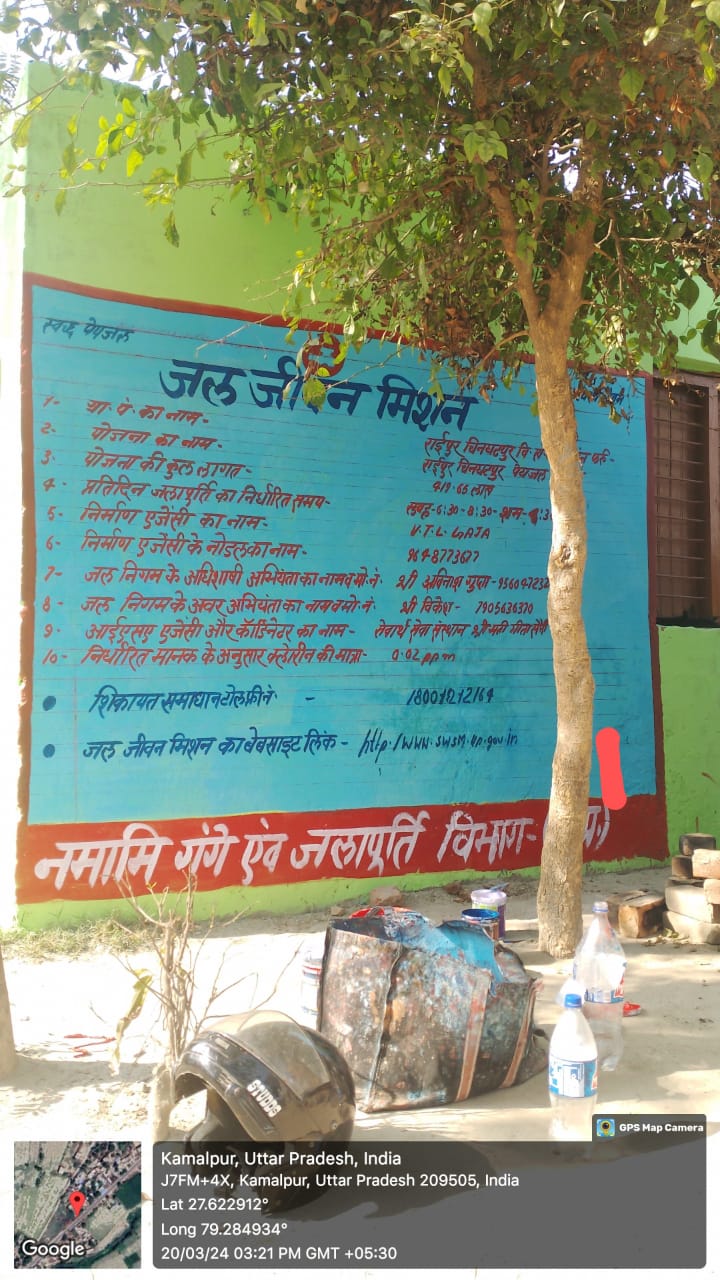 स्वच्छ पेयजल
जल जीवन मिशन
1- ग्रा. पं का नाम - राईपुर चिनघटपुर वि.
2- योजना का नाम - राईपुर चिनघटपुर पेयजल
3- योजना की कुल लागत - 419.66 लाख
4- प्रतिदिन जलापूर्ति का निर्धारित समय- सुबह-6:30-8:30- शाम-
5- निर्माण एजेंसी का नाम- V.T.L. GAJA
6- निर्माण एजेंसी के नोडल का नाम- 9648773677
7- जल निगम के अधिशाषी अभियंता का नाम व मो. नं. श्री अविनाश गुप्ता-
8- जल निगम के अवर अभियंता का नाम व मो. नं श्री विकेश- 7905636320
9- आईएसए एजेंसी और कॉर्डिनेटर का नाम - सेवार्थ सेवा संस्थान श्रीमती
10- निर्धारित मानक के अनुसार क्लोरीन की मात्रा- 0.02 ppm
• शिकायत समाधान टोल फ्री नं - 18001212164
• जल जीवन मिशन का बेबसाइट लिंक - http:/www.swsm.up.gov.in
नमामि गंगे एंव जलापूर्ति विभाग-
STUDDS
GPS Map Camera
Kamalpur, Uttar Pradesh, India
J7FM+4X, Kamalpur, Uttar Pradesh 209505, India
Lat 27.622912°
Long 79.284934°
20/03/24 03:21 PM GMT +05:30
Google